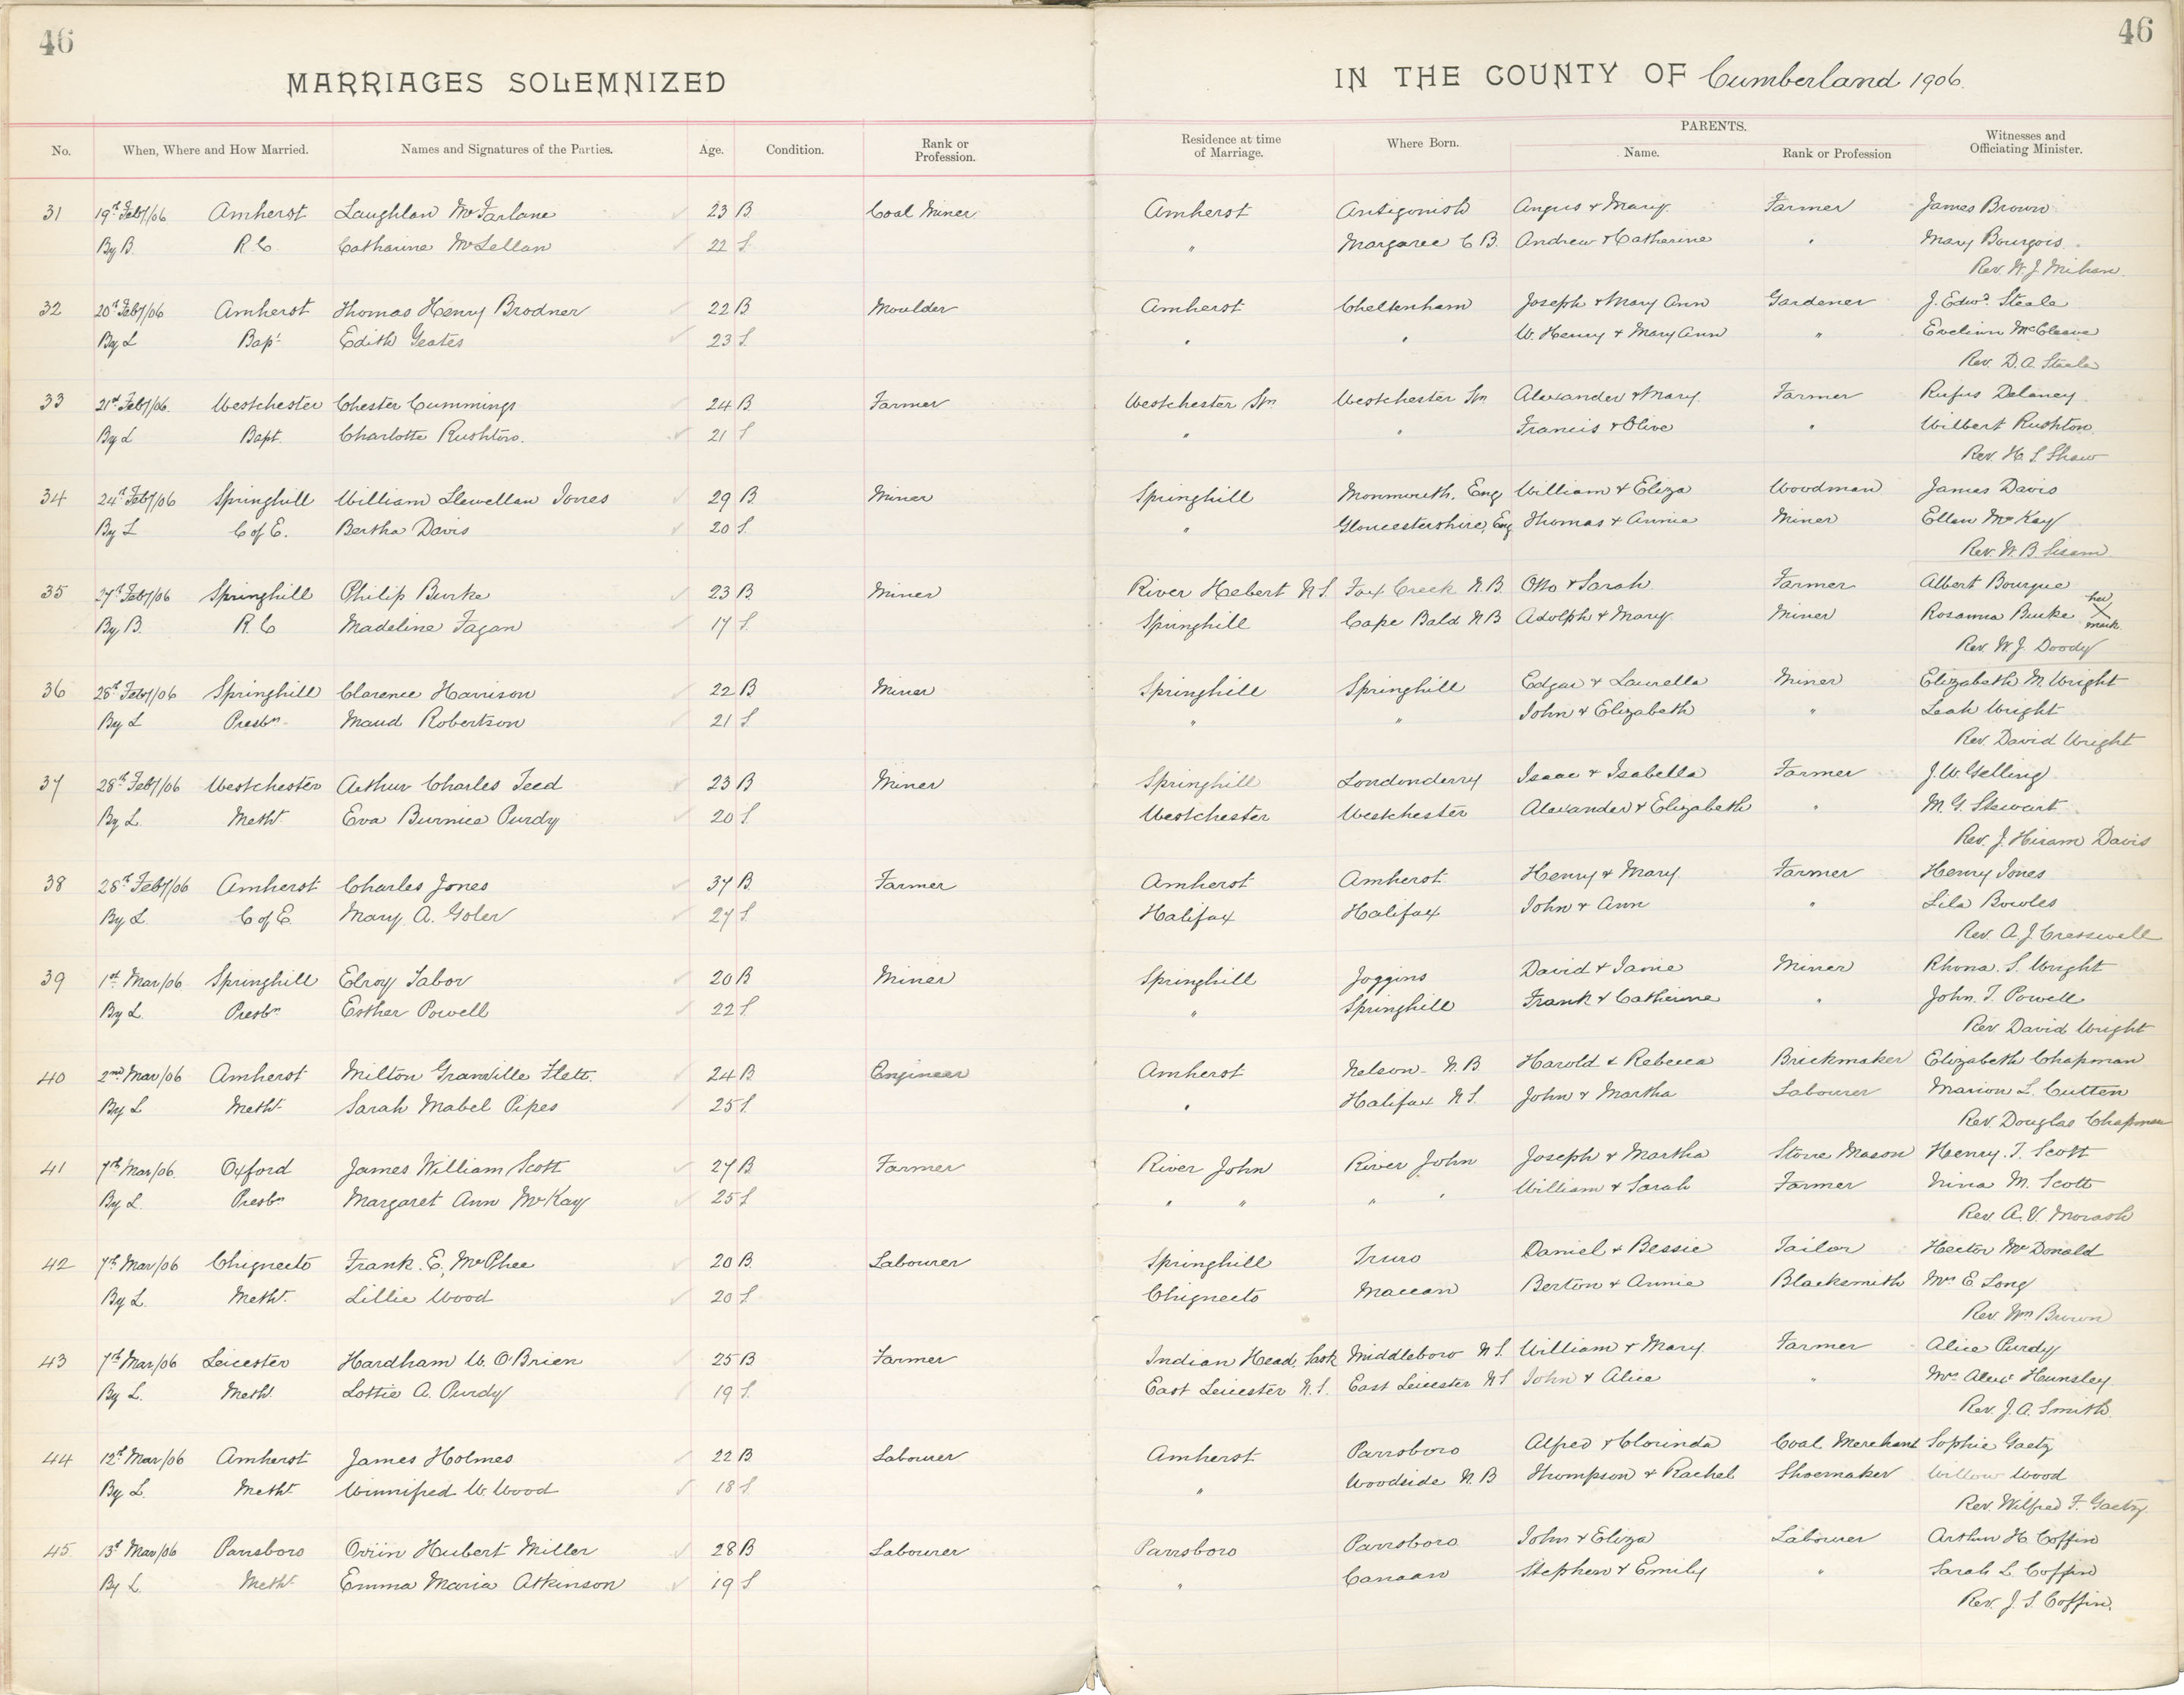 46
46
MARRIAGES SOLEMNIZED
IN THE COUNTY OF Cumberland 1906.
No. When, Where and How Married. Names and Signatures of the Parties. Age. Condition. Rank or Profession. Residence at time of Marriage. Where Born. PARENTS. Name. Rank or Profession Witnesses and Officiating Minister.
31 19th Feby/06 Amherst Laughlan McFarlane 23 B. Coal Miner Amherst Antigonish Angus & Mary Farmer James Brown
By B. R.C. Catharine McLellan 22 S. " Margaree C.B. Andrew & Catherine " Mary Bourgois
Rev. W. J. Mihan
32 20th Feby/06 Amherst Thomas Henry Brodner 22 B Moulder Amherst Cheltenham Joseph & Mary Ann Gardener J. Edwd Steele
By L Bapt. Edith Yeates 23 S. " " W. Henry & Mary Ann " McCleave
Rev. D.A. Steele
33 21st Feby/06. Westchester Chester Cummings 24 B. Farmer Westchester Stn Westchester Stn Alexander & Mary Farmer Rufus Delaney
By L Bapt. Charlotte Rushton. 21 S " " Francis & Olive " Wilbert Rushton
Rev. H. S. Shaw
34 24th Feby/06 Springhill William Llewellan Jones 29 B Miner Springhill Monmouth, Eng William & Eliza Woodman James Davis
By L C of E. Bertha Davis 20 S. " Gloucestershire, Eng Thomas & Annie Miner Ellen McKay
Rev. W. B. Sisam
35 27th Feby/06 Springhill Philip Burke 23 B Miner River Hebert N.S. Fox Creek N.B. Otto & Sarah Farmer Albert Bourque
By B. R.C Madeline Fagan 17 S. Springhill Cape Bald N B Adolph & Mary Miner Rosanna Burke her X mark
Rev. W. J. Doody
36 28th Feby/06 Springhill Clarence Harrison 22 B Miner Springhill Springhill Edgar & Laurella Miner Elizabeth M. Wright
By L Presbn Maud Robertson 21 S " " John & Elizabeth " Leah Wright
Rev. David Wright
37 28th Feby/06 Westchester Arthur Charles Teed 23 B Miner Springhill Londonderry Isaac & Isabella Farmer J. W. Gelling
By L. Meth. Eva Burnica Purdy 20 S. Westchester Westchester Alexander & Elizabeth " M. G. Stewart
Rev. J. Hiram Davis
38 28th Feby/06 Amherst Charles Jones 37 B. Farmer Amherst Amherst Henry & Mary Farmer Henry Jones
By L. C of E. Mary A. Goler 27 S. Halifax Halifax John & Ann " Lila Bowles
Rev. A. J. Cresswell
39 1st Mar/06 Springhill Elroy Tabor 20 B Miner Springhill Joggins David & Janie Miner Rhona. S. Wright
By L. Presbn Esther Powell 22 S. " Springhill Frank & Catherine " John. T. Powell
Rev David Wright
40 2nd Mar/06 Amherst Milton Granville Flett. 24 B Engineer Amherst Nelson - N.B Harold & Rebecca Brickmaker Elizabeth Chapman
By L Meth. Sarah Mabel Pipes 25 S. " Halifax N S. John & Martha Labourer Marion L. Cutten
Rev. Douglas Chapman
41 7th Mar/06. Oxford James William Scott 27 B. Farmer River John River John Joseph & Martha Stone Mason Henry. T. Scott
By L. Presbn Margaret Ann McKay 25 S " " " " William & Sarah Farmer Nina M. Scott
Rev. A. V. Morash
42 7th Mar/06 Chignecto Frank. E. McPhee 20 B. Labourer Springhill Truro Daniel & Bessie Tailor Hector McDonald
By L. Meth. Lillie Wood 20 S. Chignecto Maccan Berton & Annie Blacksmith Mrs E Long
Rev. Wm Brown
43 7th Mar/06 Leicester Hardham W. O'Brien 25 B Farmer Indian Head, Sask Middleboro N.S. William & Mary Farmer Alice Purdy
By L. Meth. Lottie A. Purdy 19 S. East Leicester N.S. East Leicester N S John & Alice " Mrs Alex. Hunsley
Rev. J. A. Smith
44 12th Mar/06 Amherst James Holmes 22 B Labourer Amherst Parrsboro Alfred & Clorinda Coal Merchant Sophie Gaetz
By L. Meth. Winnifred W. Wood 18 S. " Woodside N. B Thompson & Rachel Shoemaker Willow Wood
Rev. Wilfred F. Gaetz
45 13th Mar/06 Parrsboro Orrin Hubert Miller 28 B Labourer Parrsboro Parrsboro John & Eliza Labourer Arthur H. Coffin
By L. Meth. Emma Maria Atkinson 19 S " Canaan Stephen & Emily " Sarah L Coffin
Rev. J. S. Coffin.